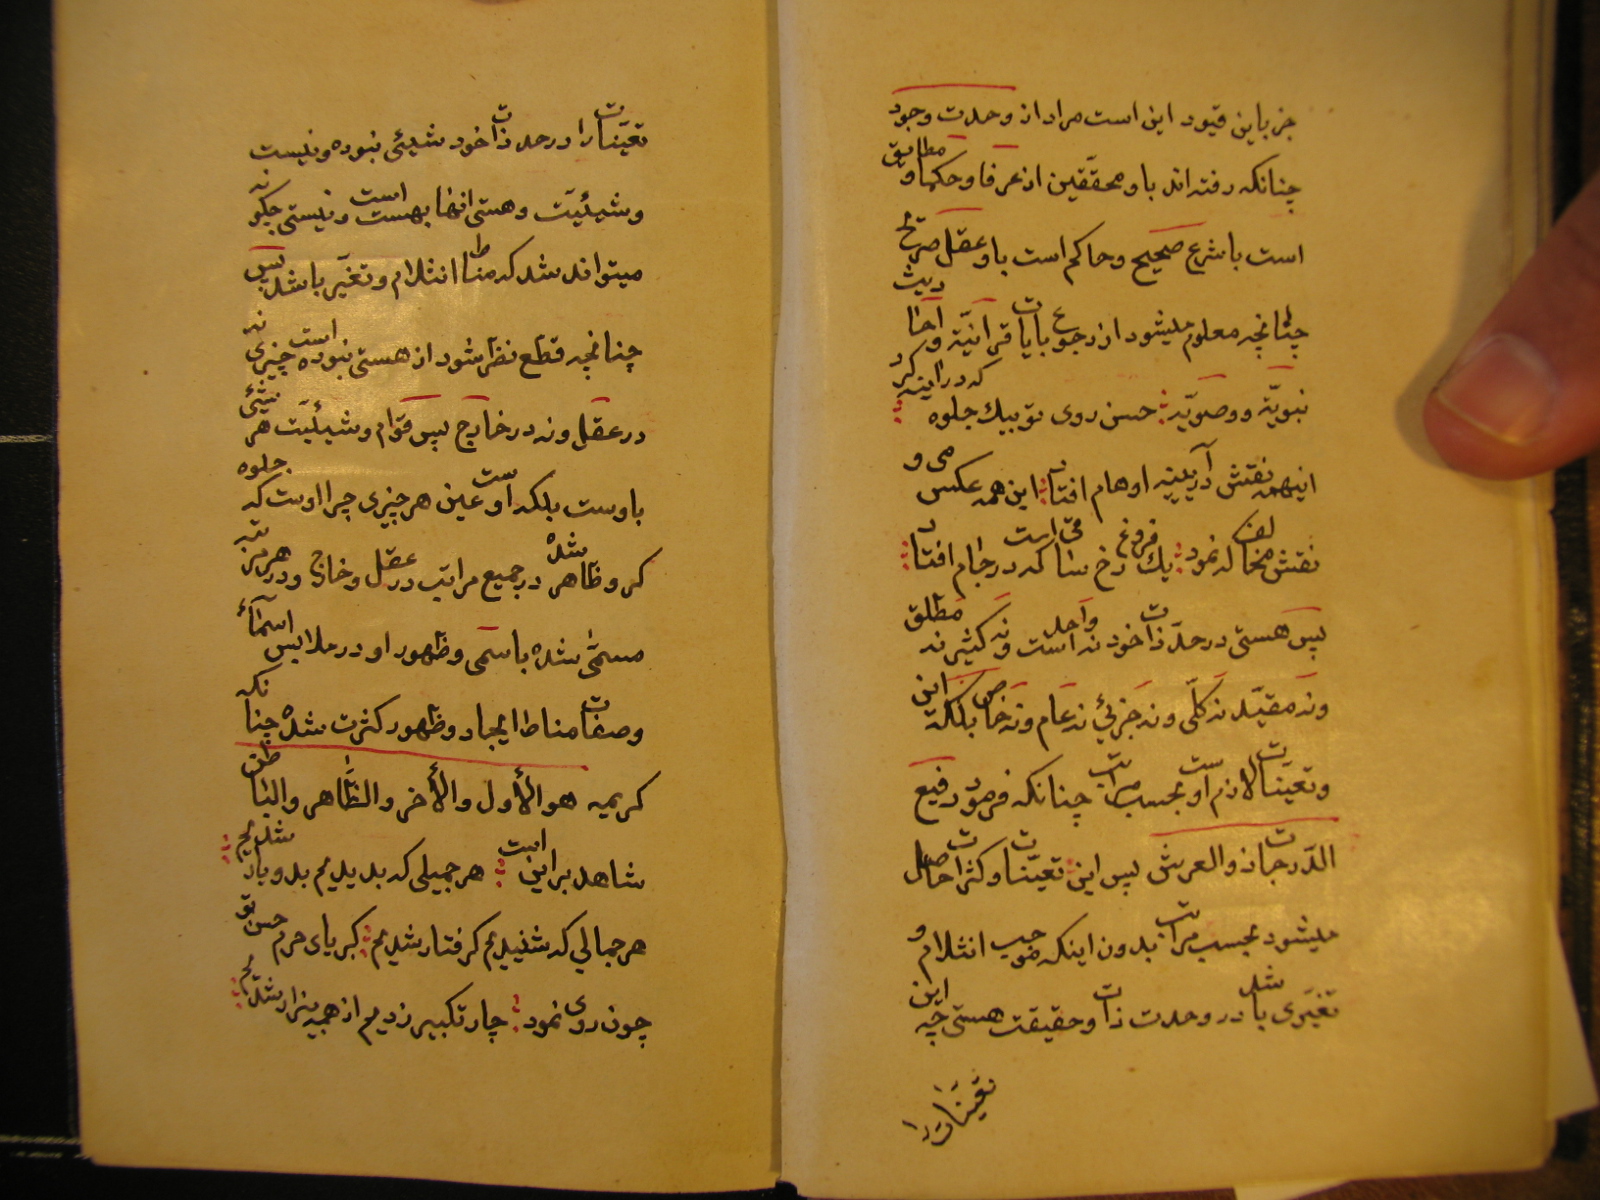 جز باین قیود این است مراد از وحدت وجود
چنانکه رفته‌اند باو محققین از عرفا و حکما و مطابق
است با شرع صحیح و حاکم است باو عقل صریح
چنانچه معلوم میشود از رجوع بایات قرانیّة و احادیث
نبویّة و وصویّه حسن روی تو بیك جلوه که در اینه کرد
اینهمه نقش در آیینه اوهام افتاد این همه عکس می و
نقش مخالف که نمود یك فروغ رخ ساقی است که در جام افتاد
پس هستی در حدّ ذات خود نه واحد است و نه کثیر نه مطلق
و نه مقیّد نه کلّی و نه جزئی نه عام و نه خاص بلکه این
و تعیّنات لازم اوست بحسب مراتب چنانکه فرمود رفیع
الدّرجات ذوالعرش پس این تعیّنات و کثرات حاصل
میشود بحسب مراتب بدون اینکه موجب انثلام و
تغیّری باشد در وحدت ذات و حقیقت هستی چه این
تعیّنات را
تعیّنات را در حد ذات خود شیئی نبوده و نیست
و شیئیّت و هستی انها بهست است و نیستی چکونه
میتواند شد که مناط انثلام و تغیّر باشد پس
چنانچه قطع نظر شود از هستی نبوده است چیزی نه
در عقل و نه در خارج پس قوام و شیئیّت هر شیئی
باوست بلکه اوست عین هر چیزی چرا اوست که جلوه
کر و ظاهر شده در جمیع مراتب در عقل و خارج و در هر مرتبه
مسمّی شده باسمی و ظهور او در ملابس اسمآء
و صفات مناط ایجاد و ظهور کثرت شده چنانکه
کریمه هو الأول والأخر والظّاهر والباطن
شاهد بر این است هر جمیلی که بدیدیم بدو یار شدیم
هر جمالی که شنیدیم گرفتار شدیم کبریای حرم حسن تو
چون روی نمود چار تکبیر زدیم از همه بیزار شدیم